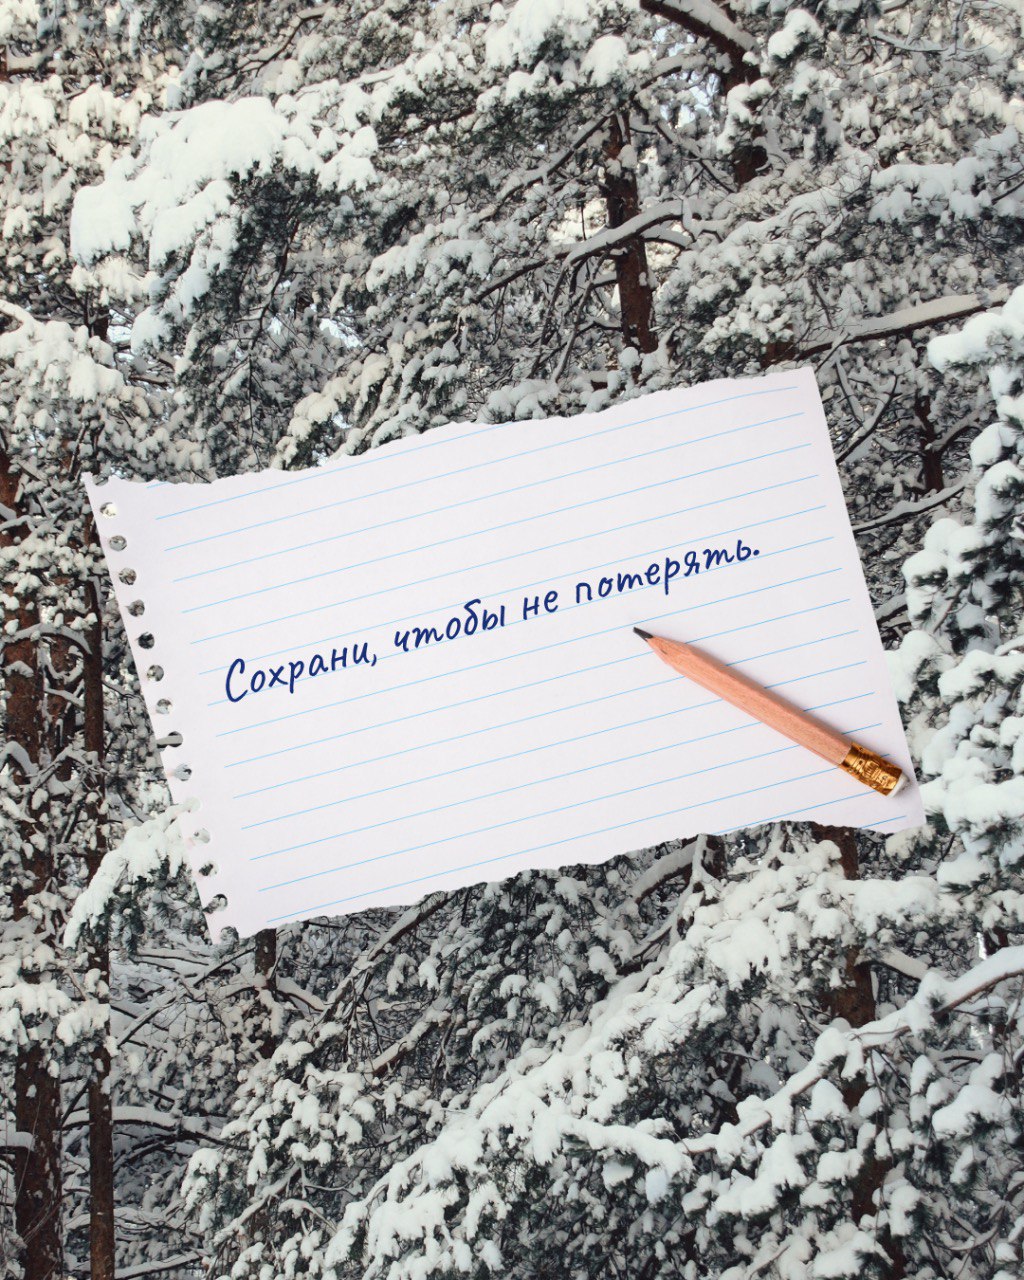 Сохрани, чтобы не потерять.